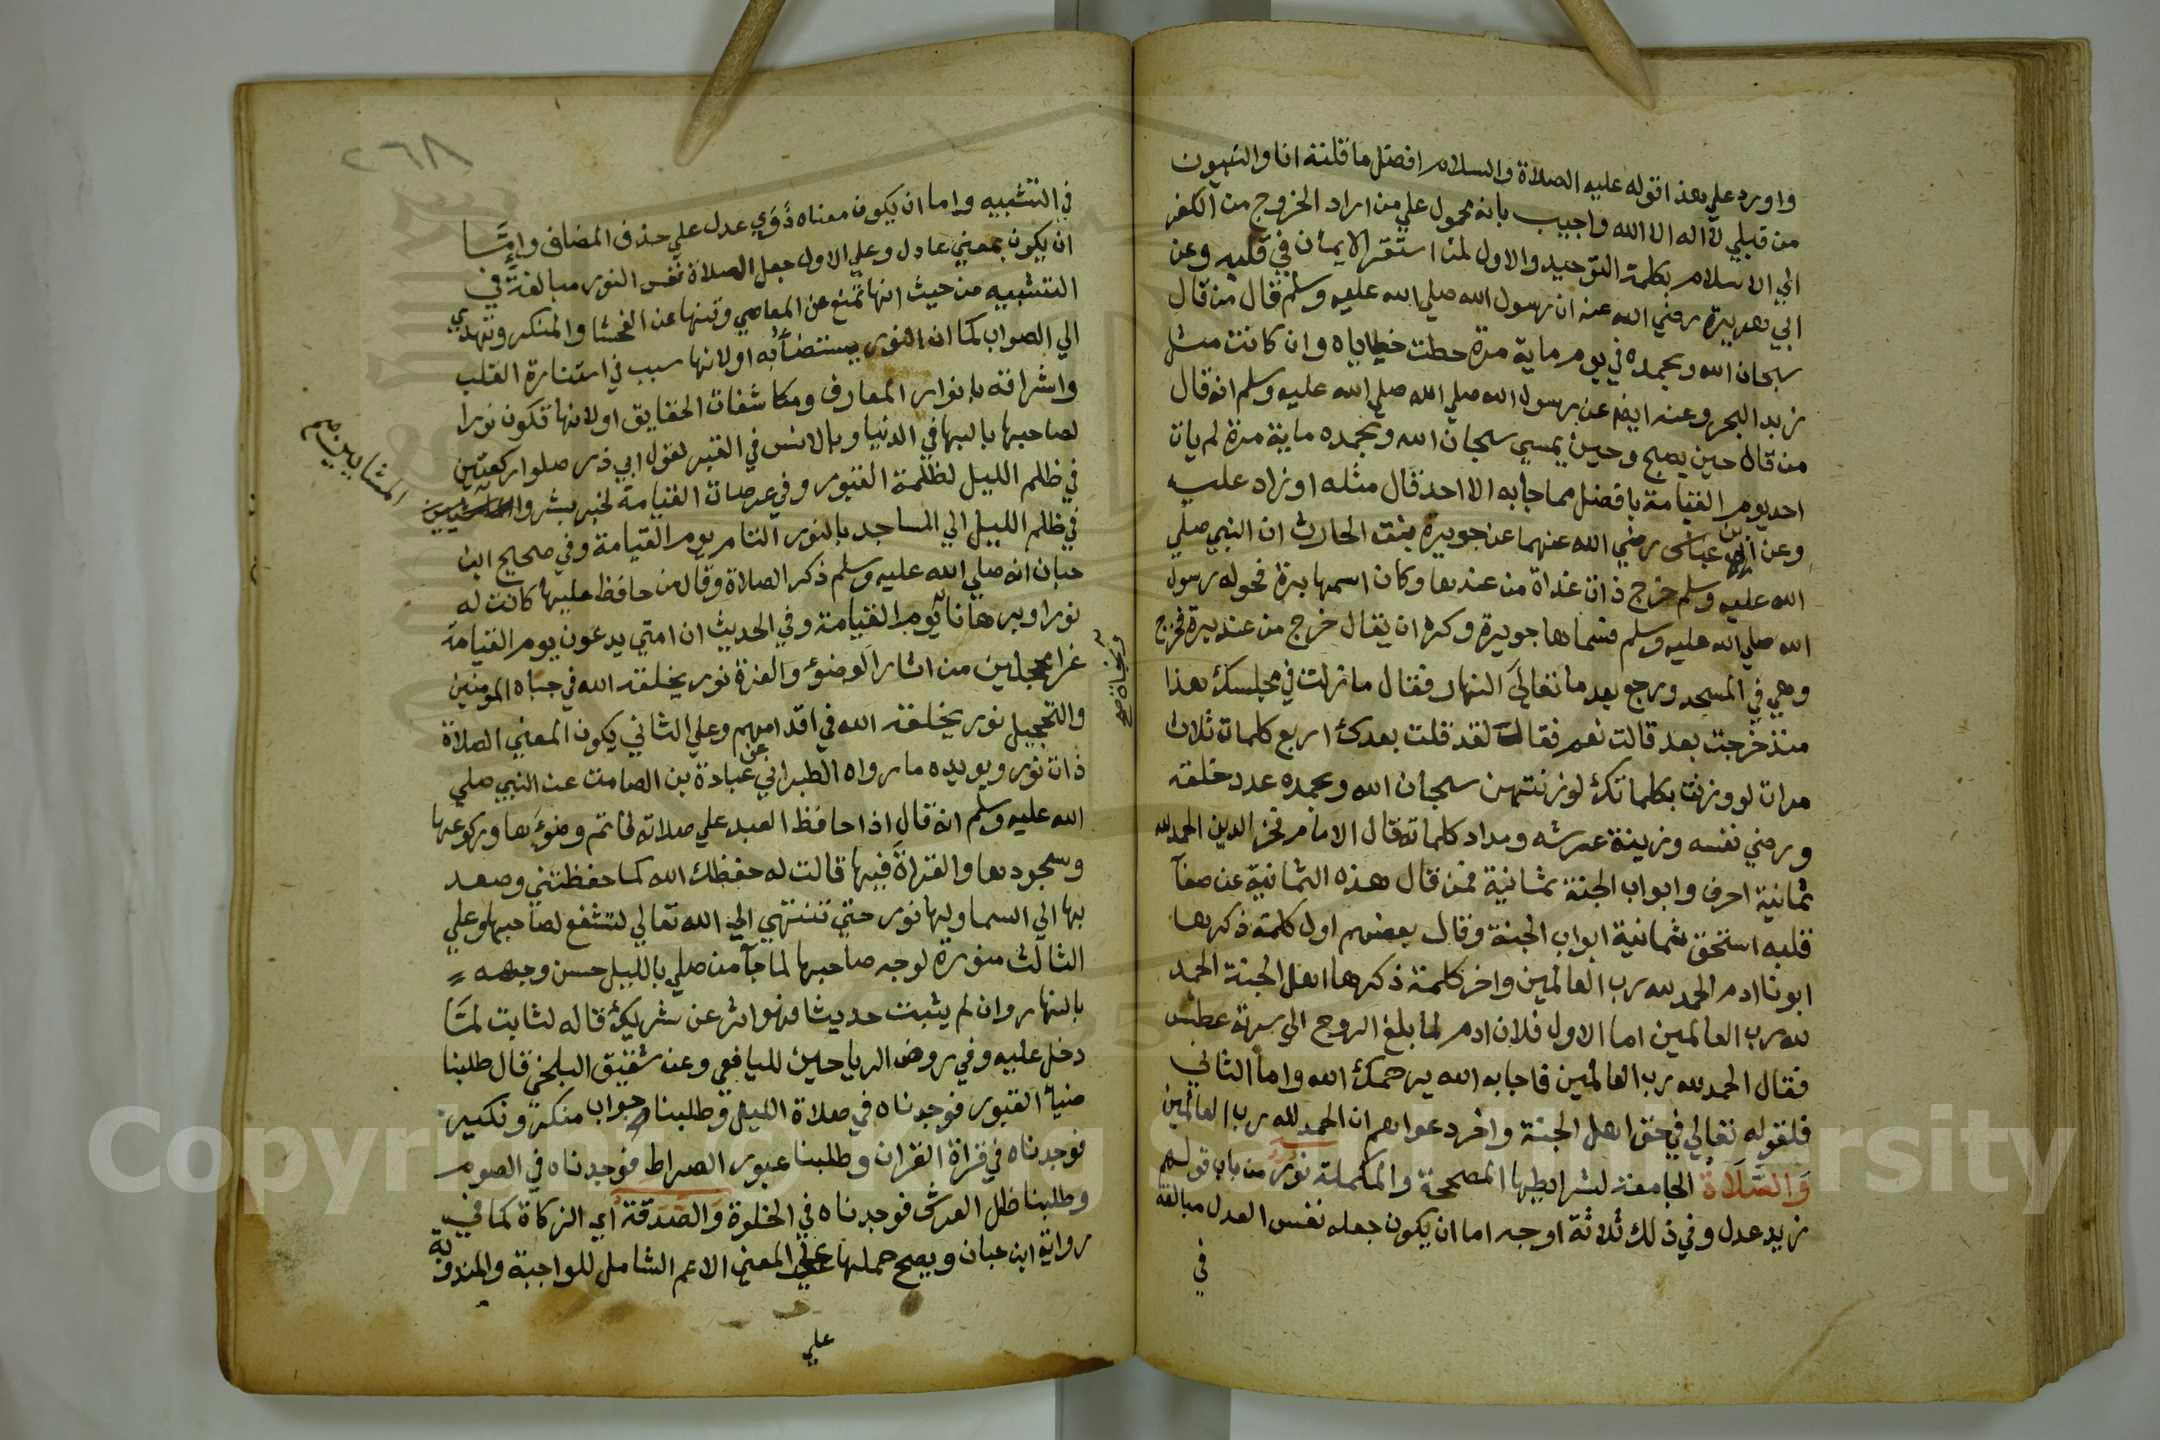 واورد علي هذا قوله عليه الصلاة والسلام افضل ما قلته انا والنبيون
من قبلي لا اله الا الله واجيب بانه محمول علي من اراد الخروج من الكفر
الي الاسلام بكلمة التوحيد والاول لمن استقر الايمان في قلبه وعن
ابي هريرة رضي الله عنه ان رسول الله صلي الله عليه وسلم قال من قال
سبحان الله وبحمده في يوم ماية مرة حطت خطاياه وان كانت مثل
زبد البحر وعنه ايضا عن رسول الله صلي الله صلي الله عليه وسلم انه قال
من قال حين يصبح وحين يمسي سبحان الله وبحمده ماية مرة لم يات
احد يوم القيامة بافضل مما جا به الا احد قال مثله او زاد عليه
وعن ابن عباس رضي الله عنهما عن جويرة بنت الحارث ان النبي صلي
الله عليه وسلم خرج ذات غداة من عندها وكان اسمها برة فحوله رسول
الله صلي الله عليه وسلم فسماها جويرة وكره ان يقال خرج من عند برة فخرج
وهي في المسجد ورجع بعد ما تعالي النهار فقال ما زلت في مجلسك هذا
منذ خرجت بعد قالت نعم فقال لقد قلت بعدك اربع كلمات ثلاث
مرات لو وزنت بكلماتك لوزنتهن سبحان الله وبحمده عدد خلقه
ورضي نفسه وزينة عرشه ومداد كلماته قال الامام فخر الدين الحمد لله
ثمانية احرف وابواب الجنة ثمانية فمن قال هذه الثمانية عن صفآ
قلبه استحق ثمانية ابواب الجنة وقال بعضهم اول كلمة ذكرها
ابونا ادم الحمد لله رب العالمين واخر كلمة ذكرها اهل الجنة الحمد
لله رب العالمين اما الاول فلان ادم لما بلغ الروح الي سرته عطس
فقال الحمد لله رب العالمين فاجابه الله يرحمك الله واما الثاني
فلقوله تعالي في حق اهل الجنة واخر دعواهم ان الحمد لله رب العالمين
والصلاة الجامعة لشرايطها المصححة والمكملة نور من باب قولهم
زيد عدل وفي ذلك ثلاثة اوجه اما ان يكون جعله نفس العدل مبالغة
في
٢٦٨
في التشبيه واما ان يكون معناه ذوي عدل علي حذف المضاف واما
ان يكون بمعني عادل وعلي الاول جعل الصلاة نفس النور مبالغة في
التشبيه من حيث انها تمنع عن المعاصي وتنها عن الفحشا والمنكر وتهدي
الي الصواب كما ان النور يستضأ به او لانها سبب في استنارة القلب
واشراقه بانوار المعارف ومكاشفات الحقايق او لانها تكون نورا
لصاحبها بالبها في الدنيا وبالانس في القبر لقول ابي ذر صلوا ركعتين
في ظلم الليل لظلمة القبور وفي عرصات القيامة لخبر بشر
المشايين صح
في ظلم الليل الي المساجد بالنور التام يوم القيامة وفي صحيح ابن
حبان انه صلي الله عليه وسلم ذكر الصلاة وقال من حافظ عليها كانت له
نورا وبرهانا يوم القيامة وفي الحديث ان امتي يدعون يوم القيامة
ونجاة صح
غرا محجلين من اثار الوضوء والغرة نور يخلقه الله في جباه المومنين
والتحجيل نور يخلقه الله في اقدامهم وعلي الثاني يكون المعني الصلاة
ذات نور ويويده ما رواه الطبراني عن عبادة بن الصامت عن النبي صلي
الله عليه وسلم انه قال اذا حافظ العبد علي صلاته فاتم وضوءها وركوعها
وسجودها والقراة فيها قالت له حفظك الله كما حفظتني وصعد
بها الي السما ولها نور حتي تنتهي الي الله تعالي لتشفع لصاحبها وعلي
الثالث منورة لوجه صاحبها لما جآ من صلي بالليل حسن وجهه
بالنهار وان لم يثبت حديثا فهو اثر عن شريك قاله لثابت لما
دخل عليه وفي روض الرياحين لليافعي وعن شقيق البلخي قال طلبنا
ضيا القبور فوجدناه في صلاة الليل وطلبنا جواب منكر ونكير
فوجدناه في قراة القران وطلبنا عبور الصراط فوجدناه في الصوم
وطلبنا ظل العرش فوجدناه في الخلوة والصدقة اي الزكاة كما في
رواية ابن حبان ويصح حملها علي المعني الاعم الشامل للواجبة والمندوبة
علي
Copyright © King Saud University